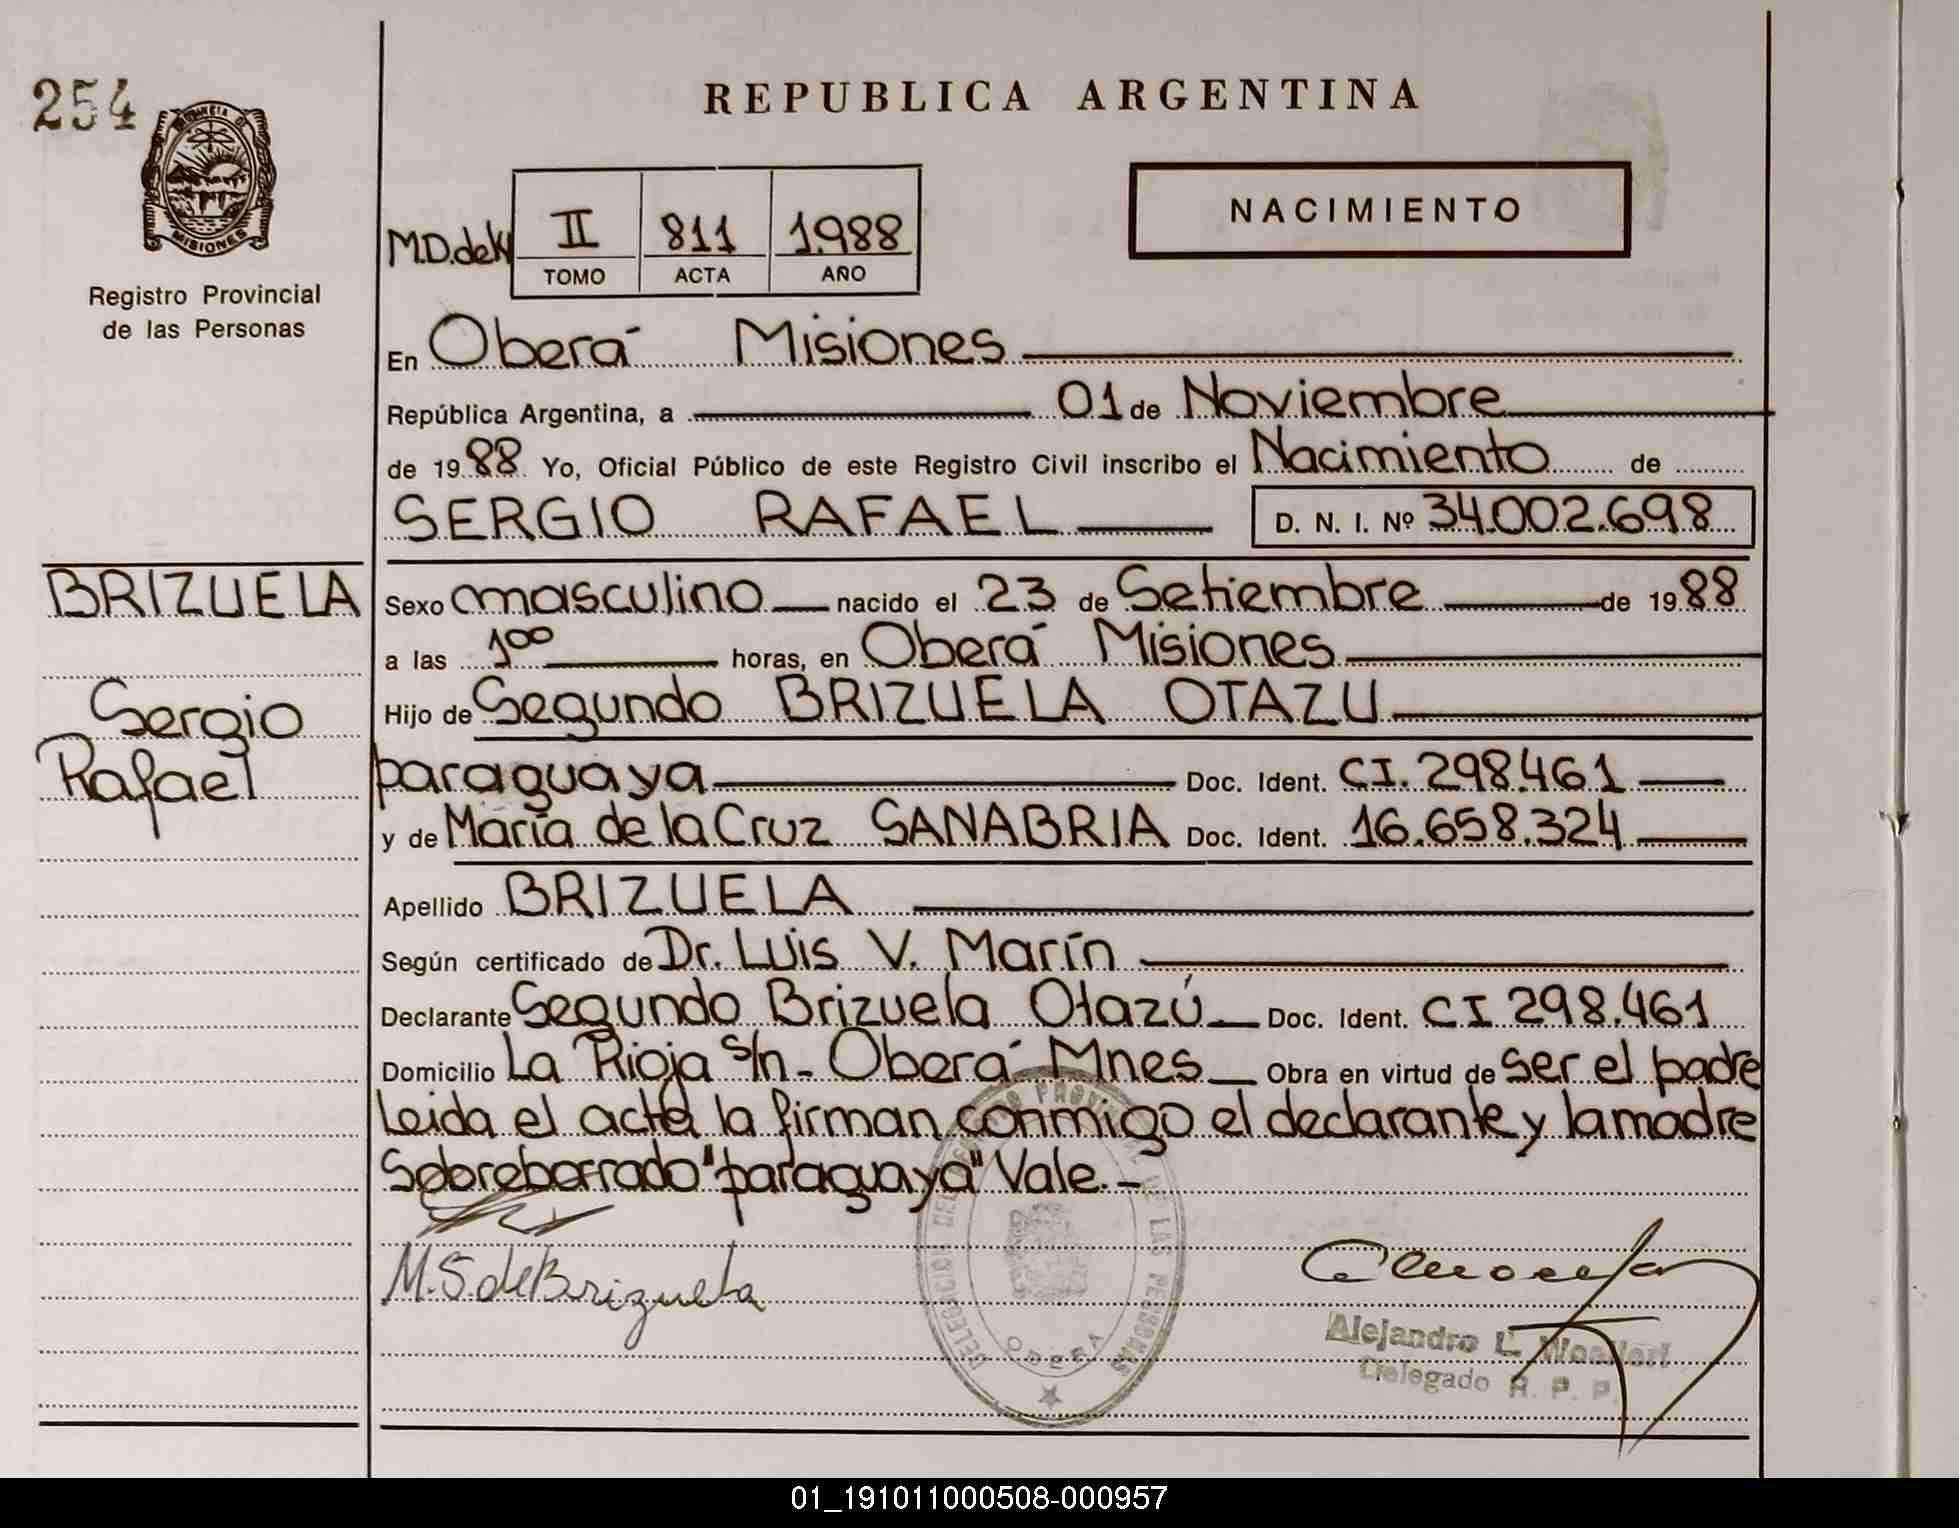 254
PROVINCIA DE
MISIONES
Registro Provincial
de las Personas
REPUBLICA ARGENTINA
NACIMIENTO
M.D.deK II 811 1.988
TOMO ACTA AÑO
En Oberá Misiones
República Argentina, a 01 de Noviembre
de 1988 Yo, Oficial Público de este Registro Civil inscribo el Nacimiento de
SERGIO RAFAEL D. N. I. Nº 34.002.698
BRIZUELA
Sergio
Rafael
Sexo masculino nacido el 23 de Setiembre de 1988
a las 1⁰⁰ horas, en Oberá Misiones
Hijo de Segundo BRIZUELA OTAZU
paraguaya Doc. Ident. CI. 298.461
y de María de la Cruz SANABRIA Doc. Ident. 16.658.324
Apellido BRIZUELA
Según certificado de Dr. Luis V. Marín
Declarante Segundo Brizuela Otazú Doc. Ident. CI 298.461
Domicilio La Rioja s/n - Oberá Mnes Obra en virtud de ser el padre
Leida el acta la firman conmigo el declarante y la madre
Sobreborrado "paraguaya" Vale.-
M.S de Brizuela
DELEGACION DEL REGISTRO PROVINCIAL DE LAS PERSONAS
OBERA
Alejandro L.
Delegado R. P. P.
01_191011000508-000957